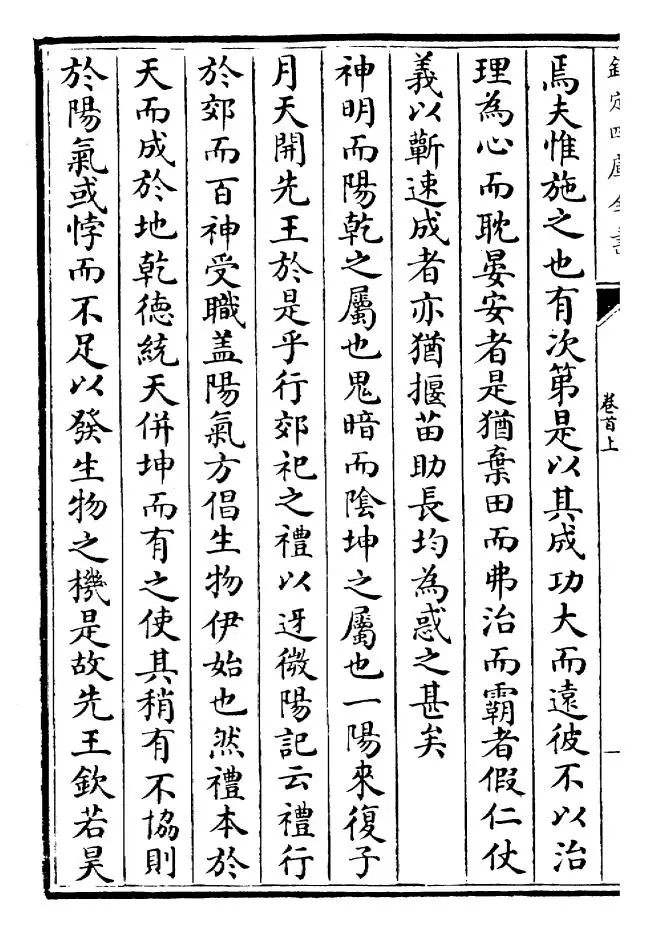 欽定四庫全書
卷首上
一
焉夫惟施之也有次第是以其成功大而遠彼不以治
理為心而耽晏安者是猶棄田而弗治而霸者假仁仗
義以蘄速成者亦猶揠苗助長均為惑之甚矣
神明而陽乾之屬也鬼暗而陰坤之屬也一陽來復子
月天開先王於是乎行郊祀之禮以迓微陽記云禮行
於郊而百神受職蓋陽氣方倡生物伊始也然禮本於
天而成於地乾德統天併坤而有之使其稍有不協則
於陽氣或悖而不足以發生物之機是故先王欽若昊